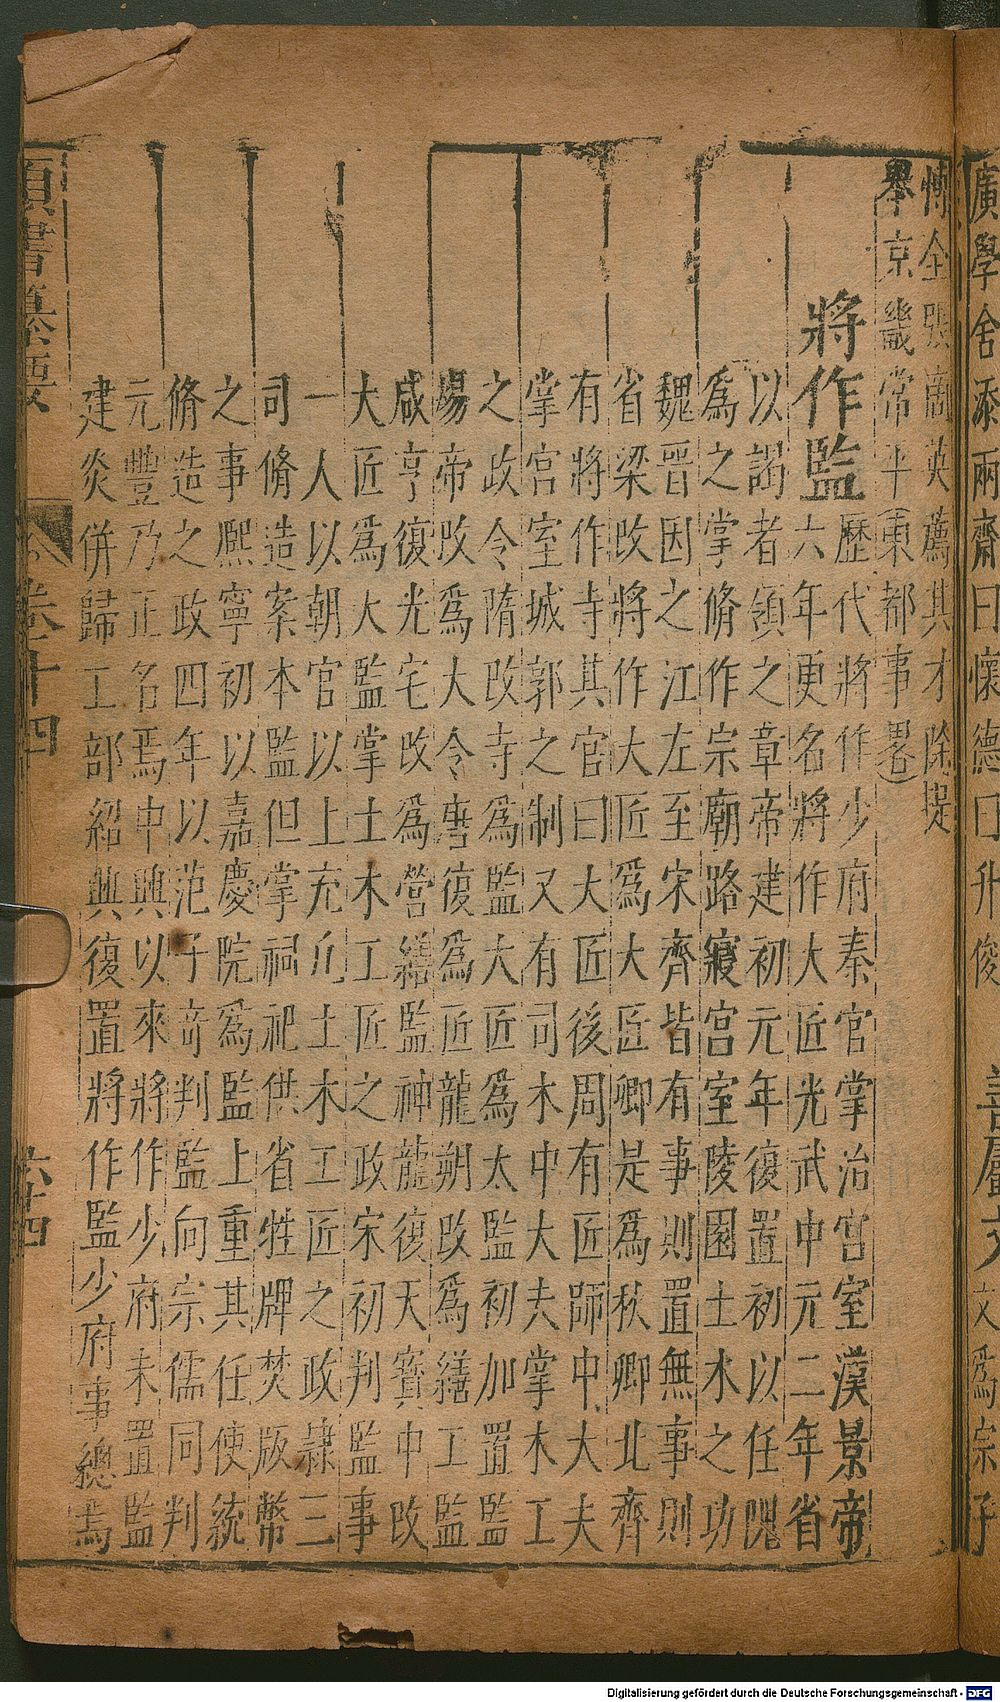 廣學舍添兩齋曰懷德曰升俊　善屬文文爲宗子
博全張商英薦其才除提
舉京畿常平東都事畧
將作監
歷代將作少府秦官掌治宮室漢景帝
六年更名將作大匠光武中元二年省
以謁者領之章帝建初元年復置初以任隗
爲之掌脩作宗廟路寢宮室陵園土木之功
魏晉因之江左至宋齊皆有事則置無事則
省梁改將作大匠爲大匠卿是爲秋卿北齊
有將作寺其官曰大匠後周有匠師中大夫
掌宮室城郭之制又有司木中大夫掌木工
之政令隋改寺爲監大匠爲太監初加置監
煬帝改爲大令唐復爲匠龍朔改爲繕工監
咸亨復光宅改爲營繕監神龍復天寳中改
大匠爲大監掌土木工匠之政宋初判監事
一人以朝官以上充凢土木工匠之政隷三
司脩造案本監但掌祠祀供省牲牌焚版幣
之事熈寧初以嘉慶院爲監上重其任使統
脩造之政四年以范子竒判監向宗儒同判
元豐乃正名焉中興以來將作少府未置監
建炎併歸工部紹興復置將作監少府事總焉
類書纂要
卷十四
六十四
Digitalisierung gefördert durch die Deutsche Forschungsgemeinschaft - DFG